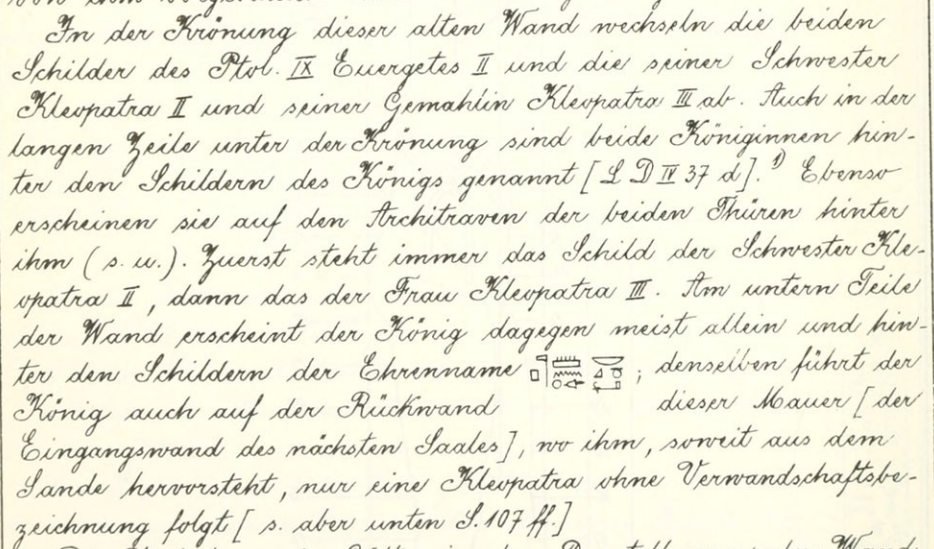 In der Krönung dieser alten Wand wechseln die beiden
Schilder des Ptol. IX Euergetes II und die seiner Schwester
Kleopatra II und seiner Gemahlin Kleopatra III ab. Auch in der
langen Zeile unter der Krönung sind beide Königinnen hin-
ter den Schildern des Königs genannt [L D IV 37 d].¹⁾ Ebenso
erscheinen sie auf den Architraven der beiden Thüren hinter
ihm (s. u.). Zuerst steht immer das Schild der Schwester Kle-
opatra II, dann das der Frau Kleopatra III. Am untern Teile
der Wand erscheint der König dagegen meist allein und hin-
ter den Schildern der Ehrenname ; denselben führt der
König auch auf der Rückwand dieser Mauer [der
Eingangswand des nächsten Saales], wo ihm, soweit aus dem
Sande hervorsteht, nur eine Kleopatra ohne Verwandschaftsbe-
zeichnung folgt [s. aber unten S. 107 ff.]